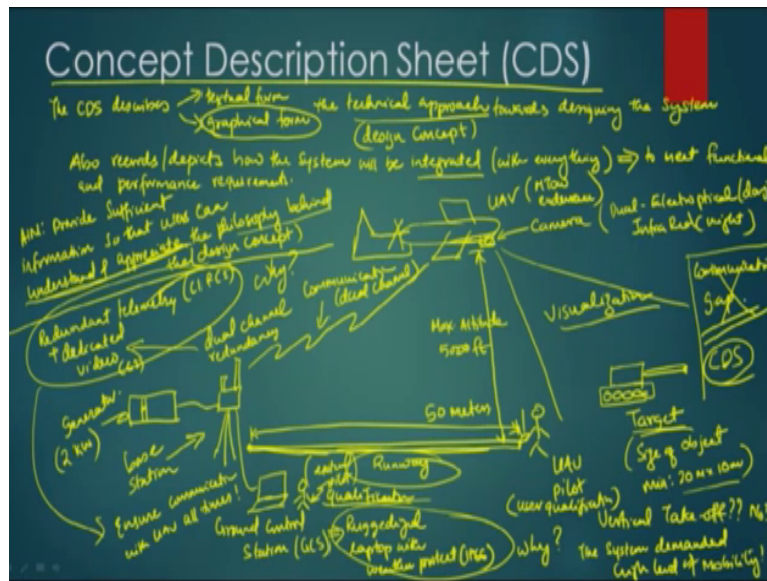 Concept Description Sheet (CDS)
The CDS describes → textual form the technical approach towards designing the System
→ graphical form (design concept)
Also records/depicts how the System will be integrated (with everything) ⇒ to meet functional
and performance requirements.
AIM: Provide Sufficient
information so that users can
understand & appreciate the philosophy behind
the (design concept)
UAV (MTOW
endurance)
Camera
Dual - Electroptical (day)
Infra Red (night)
Redundant telemetry
+ dedicated
video
Why?
dual channel
redundancy
Communication
(dual channel)
Max. Altitude
5000 ft
Visualization
Communication
Gap.
CDS
Generator.
(2 KW)
base
station
50 meters
Runway
Qualification
Target
(Size of object
min: 20m x 10m)
UAV
pilot
(user qualification)
Ensure communication
with UAV all times!
Ground Control
Station (GCS) ⇒ Ruggedized
laptop with
weather protect (IP66)
Why?
Vertical Take-off?? No!
The System demanded
high level of Mobility!